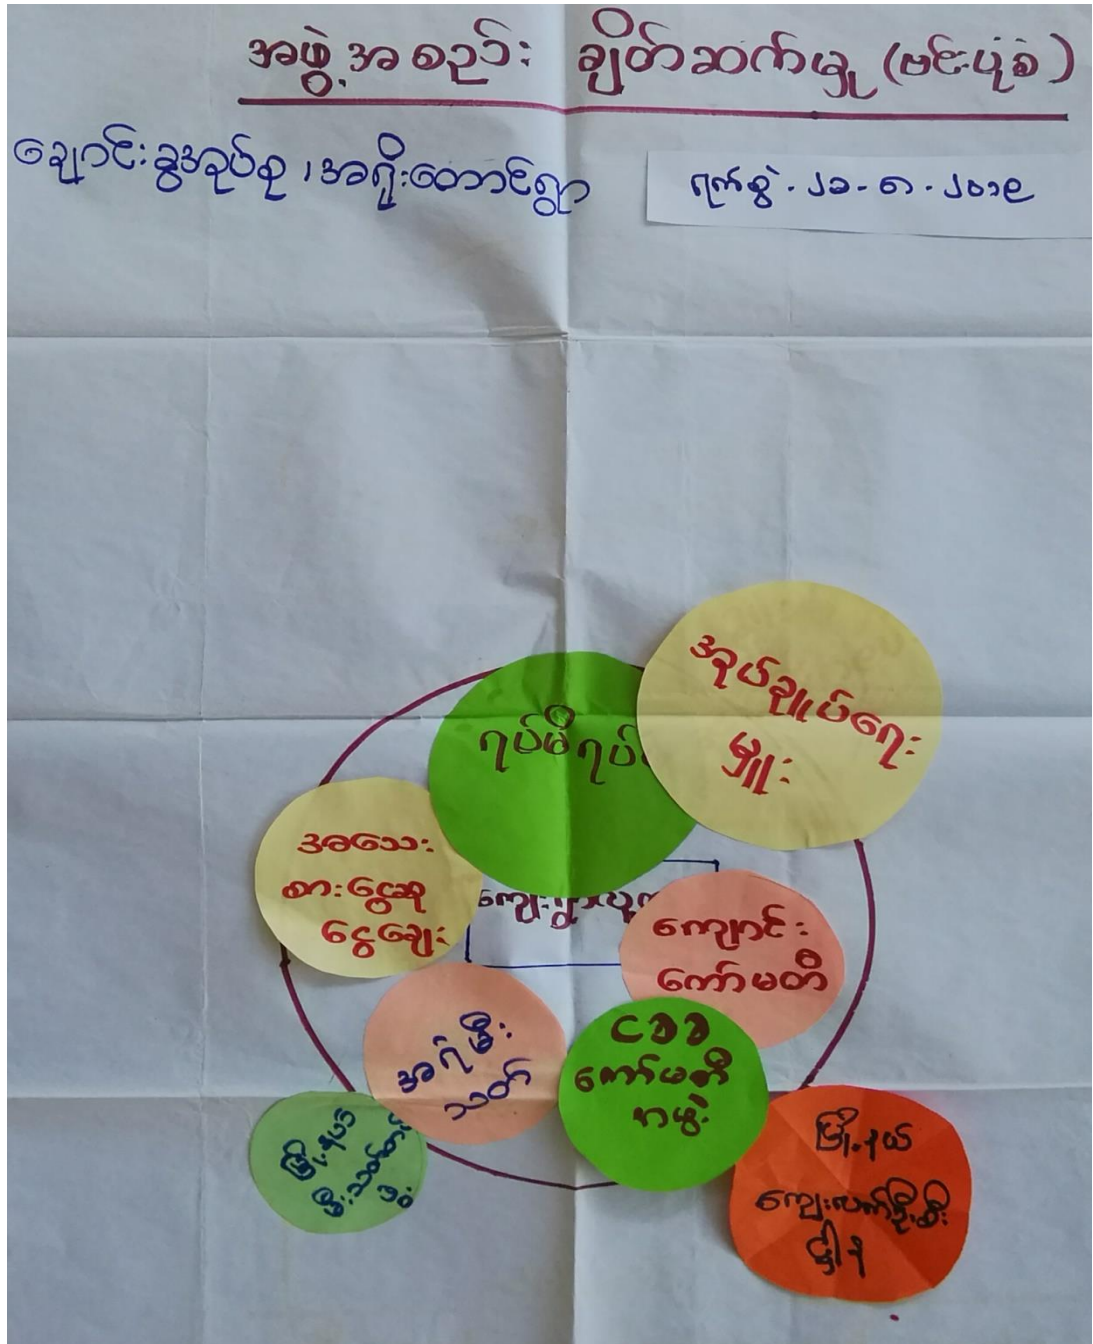 အဖွဲ့အစည်း ချိတ်ဆက်မှု (ဗင်းပုံစံ)
ချောင်းခွအုပ်စု ၊ အရိုးတောင်ရွာ
ရက်စွဲ - ၂၁ - ၈ - ၂၀၁၉
အုပ်ချုပ်ရေး
မှူး
ရပ်မိရပ်
အသေး
စားငွေစု
ငွေချေး
ကျေးရွာလူ
ကျောင်း
ကော်မတီ
အရံမီး
သတ်
ကော်မတီ
မြို့နယ်
မီးသတ်တပ်
ဖွဲ့
မြို့နယ်
ကျေးလက်ဦးစီး
ဌါန